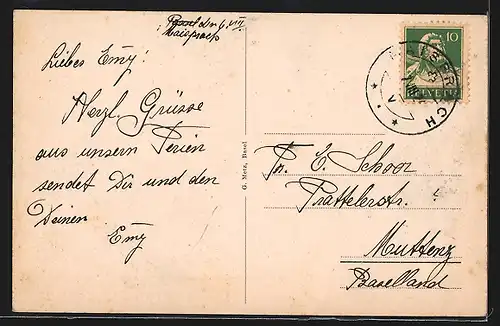 Basel den 6. VII
Maisprach
Liebes Emy!
Herzl. Grüsse
aus unsern Ferien
sendet Dir und den
Deinen
Emy
G. Metz, Basel
10
HELVETIA
MAISPRACH
Fr. E. Schoor
Prattelerstr. 7.
Muttenz
Baselland